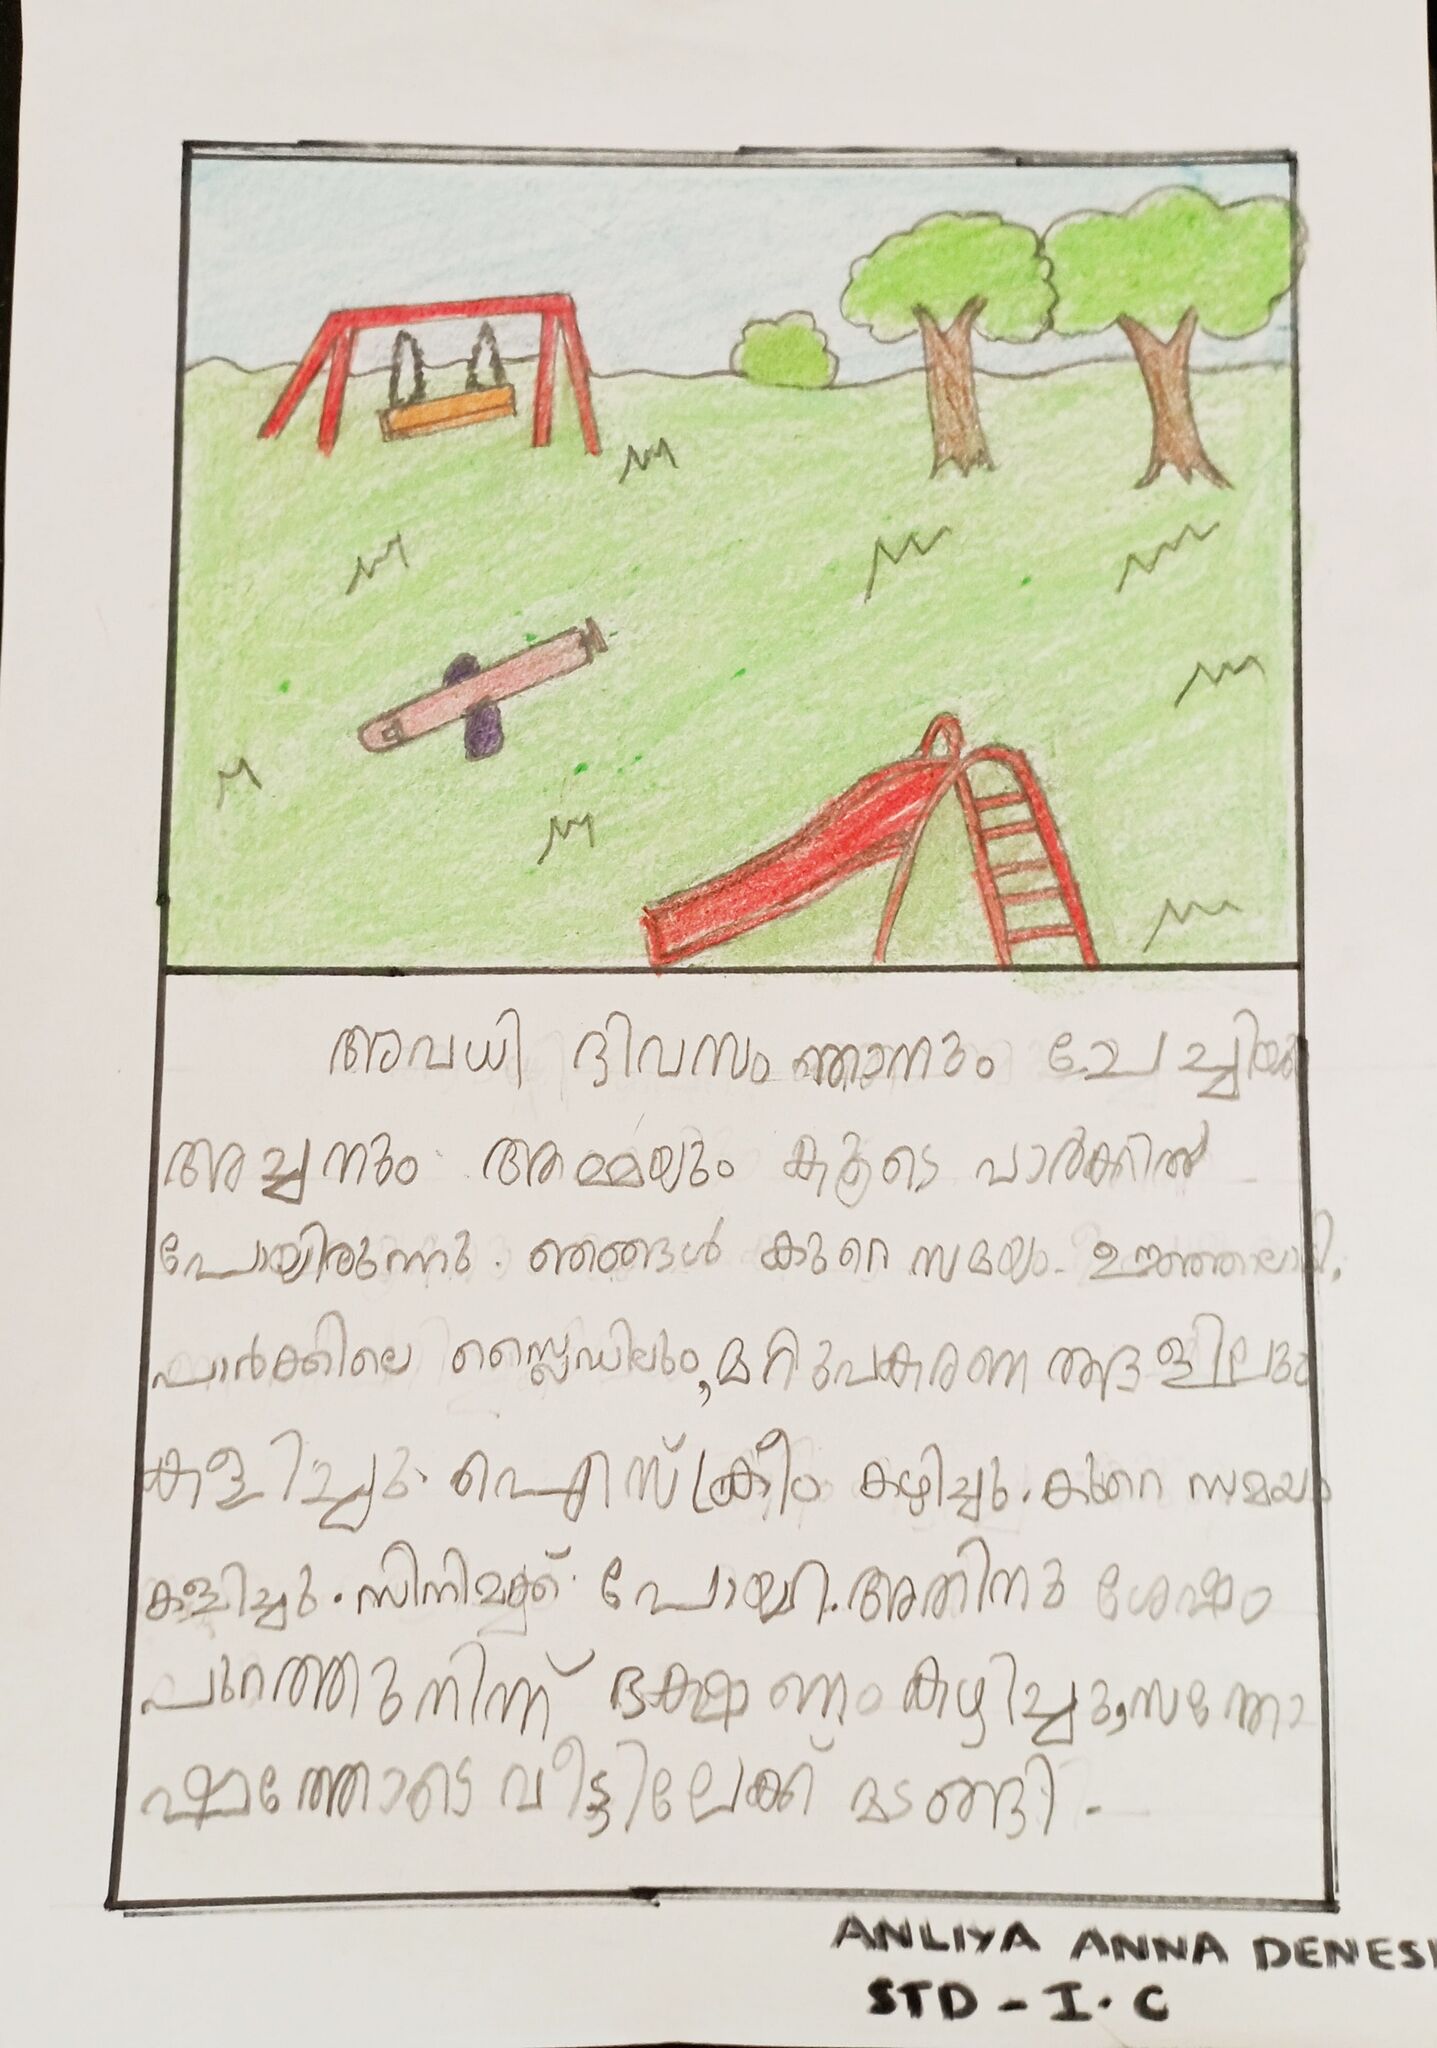 അവധി ദിവസം ഞാനും ചേച്ചിയും
അച്ചനും അമ്മയും കൂടെ പാർക്കിൽ
പോയിരുന്നു. ഞങ്ങൾ കുറെ സമയം ഊഞ്ഞാലാടി.
പാർക്കിലെ സ്ലൈഡിലും,
കളിച്ചു. ഐസ്ക്രീം കഴിച്ചു. കുറെ സമയം
കളിച്ചു. സിനിമക്ക് പോയി. അതിനു ശേഷം
പുറത്തുനിന്ന് ഭക്ഷണം കഴിച്ചു, സന്തോ
ഷത്തോടെ വീട്ടിലേക്ക് മടങ്ങി.
ANLIYA ANNA
STD - I. C